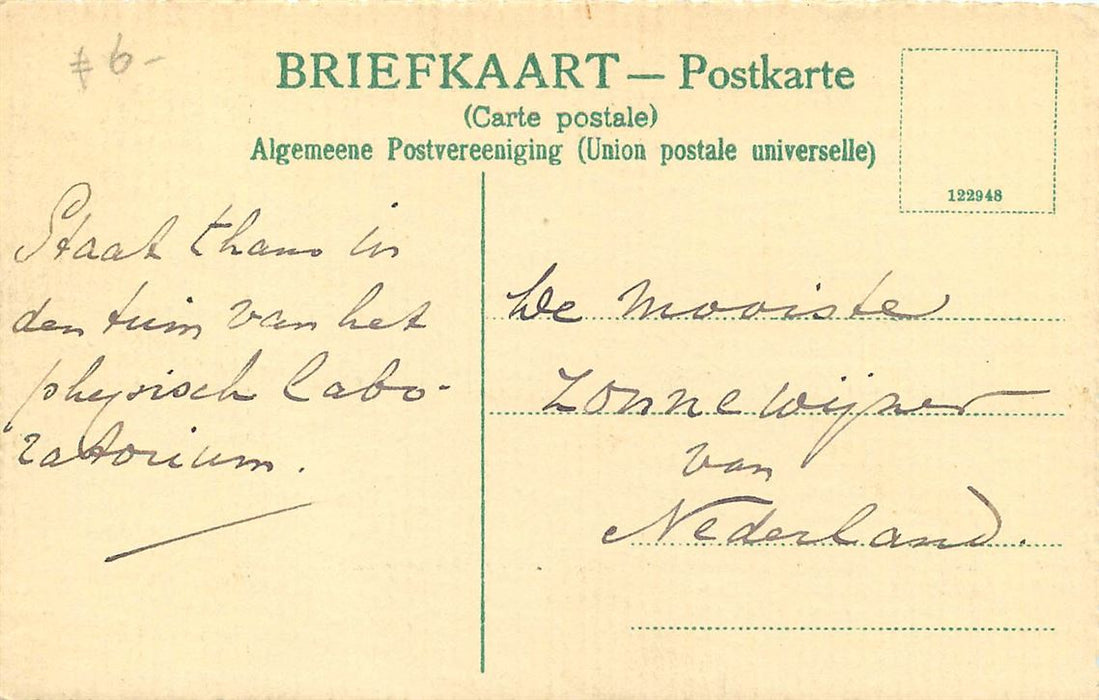 ƒ 6-
BRIEFKAART — Postkarte
(Carte postale)
Algemeene Postvereeniging (Union postale universelle)
122948
Staat thans in
den tuin van het
physisch labo-
ratorium.
De Mooiste
Zonnewijzer
van
Nederland.